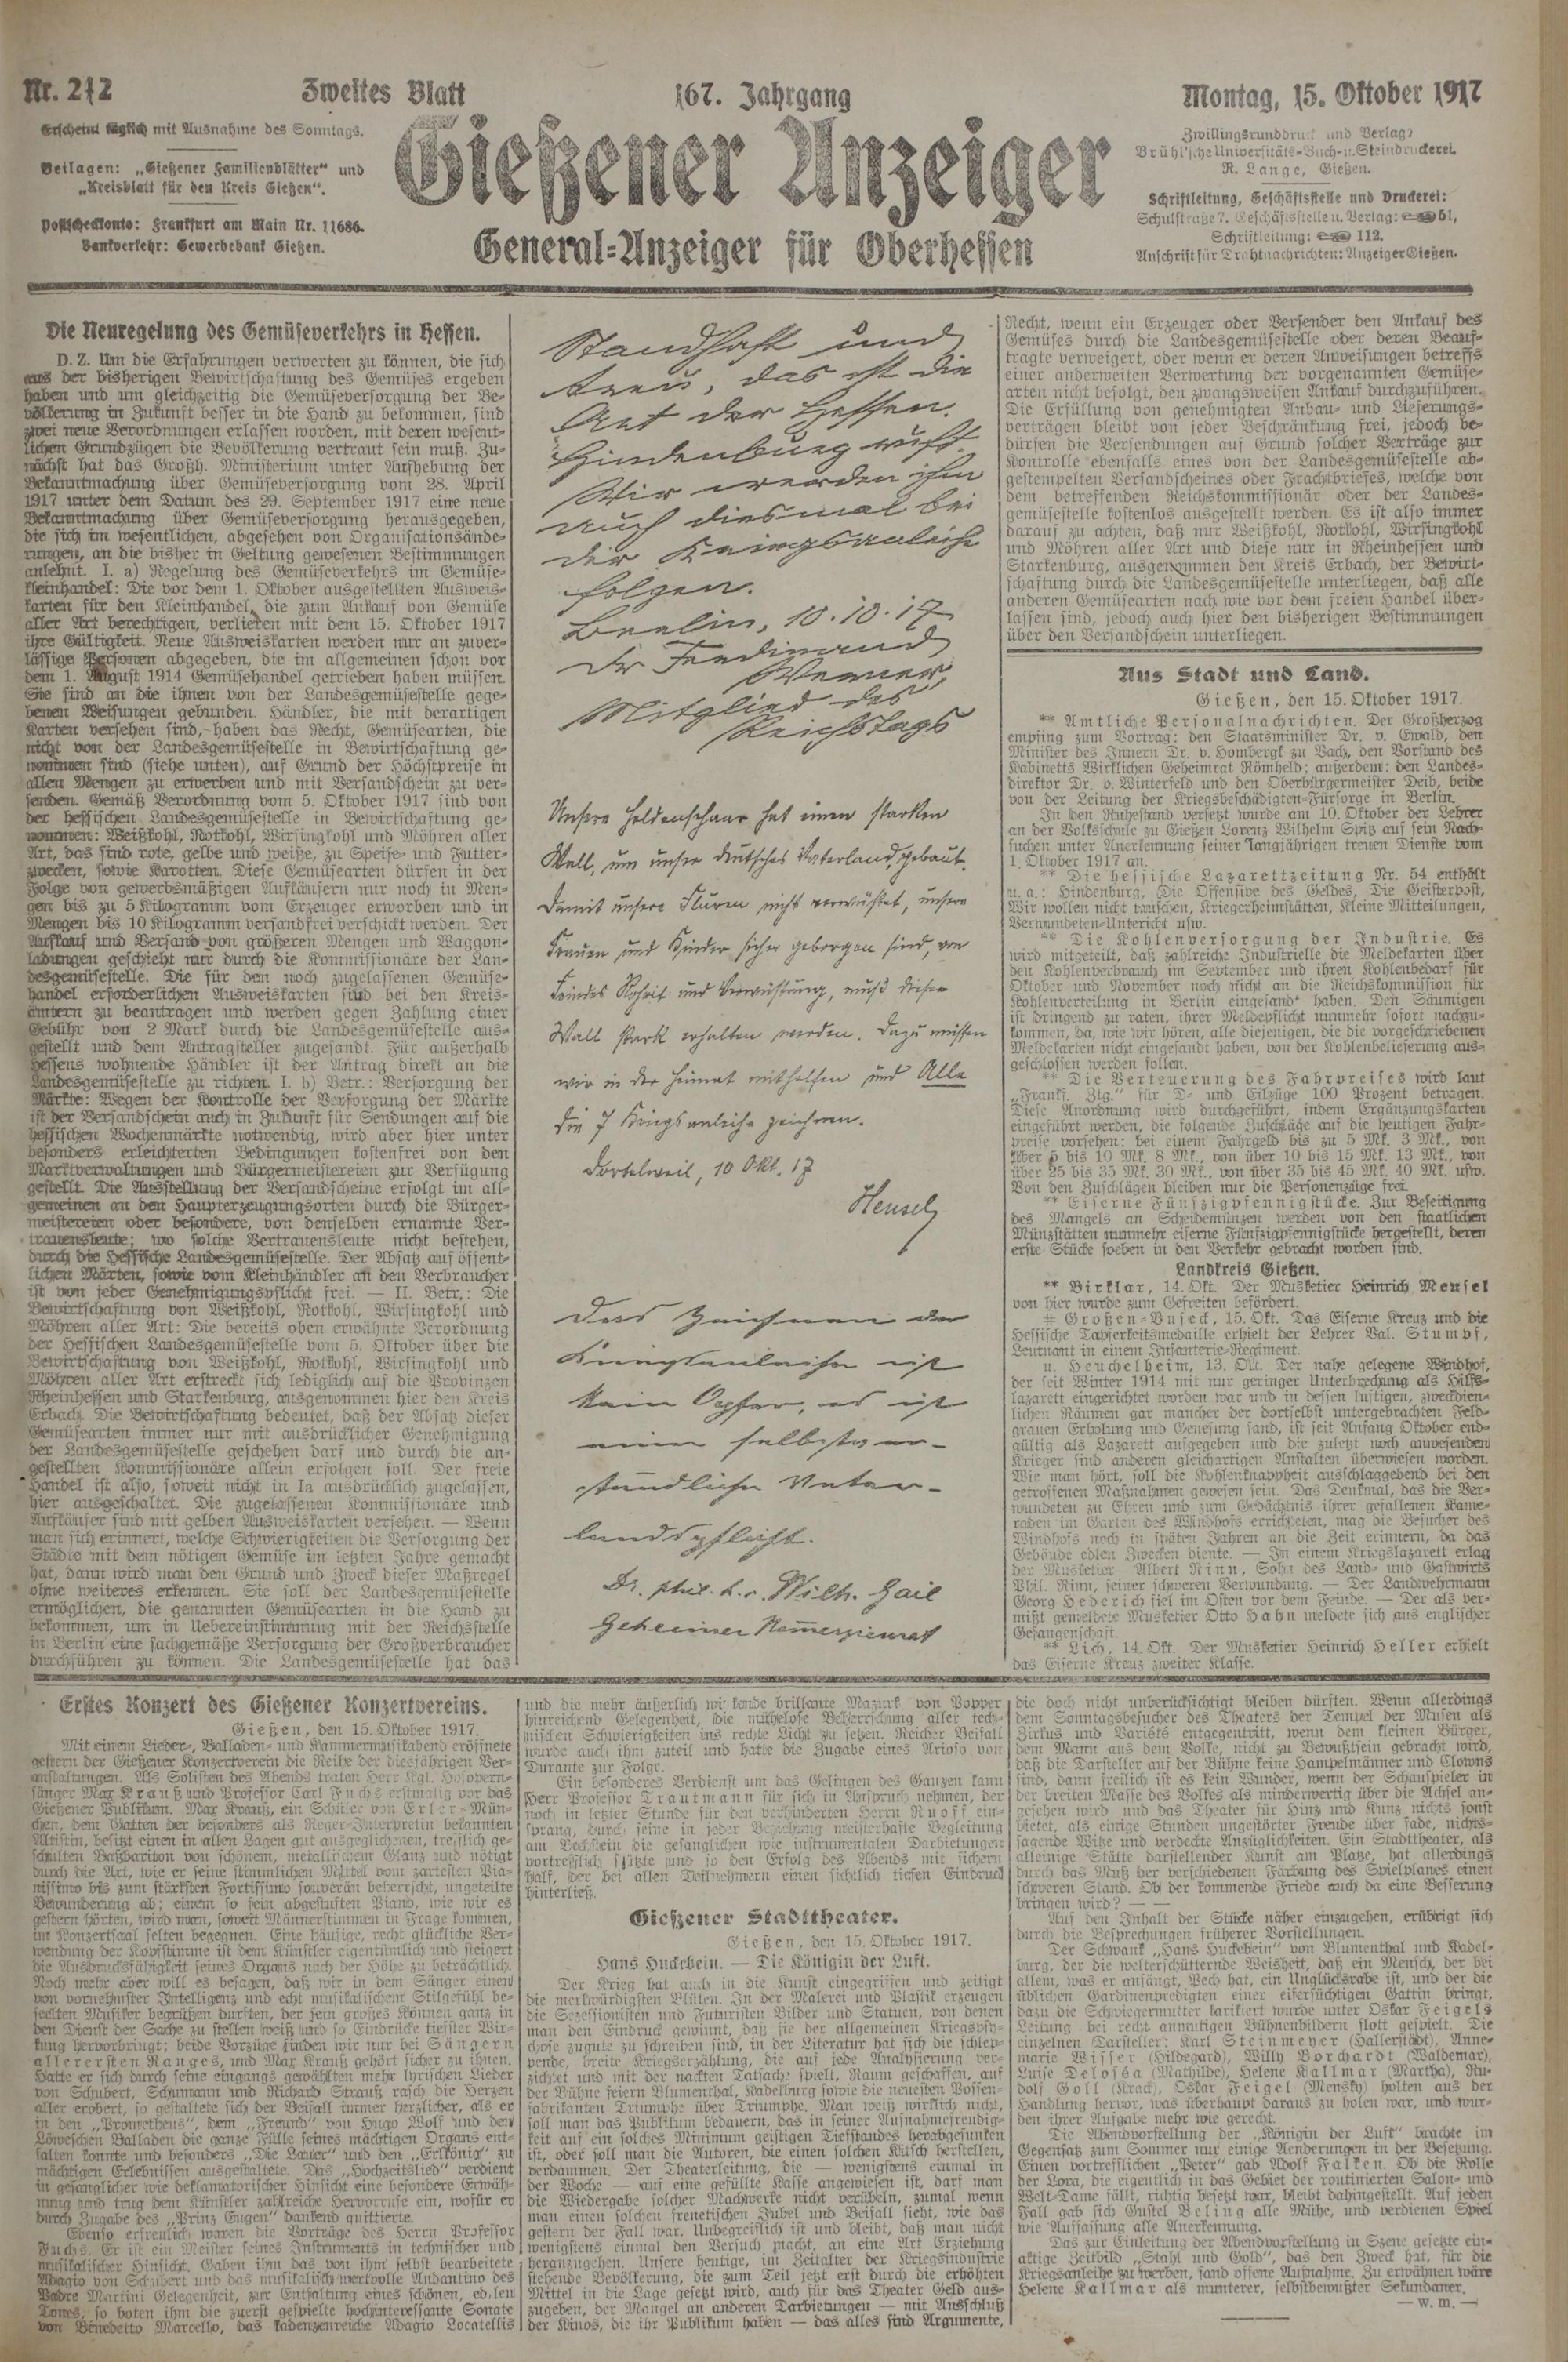 Nr. 242
Zweites Blatt
167. Jahrgang
Montag, 15. Oktober 1917
Erscheint täglich mit Ausnahme des Sonntags.
Beilagen: „Gießener Familienblätter“ und
„Kreisblatt für den Kreis Gießen“.
Postscheckkonto: Frankfurt am Main Nr. 11686.
Bankverkehr: Gewerbebank Gießen.
Gießener Anzeiger
General-Anzeiger für Oberhessen
Zwillingsrunddruck und Verlag:
Brühl'sche Universitäts-Buch- u. Steindruckerei.
R. Lange, Gießen.
Schriftleitung, Geschäftsstelle und Druckerei:
Schulstraße 7. Geschäftsstelle u. Verlag: 51,
Schriftleitung: 112.
Anschrift für Drahtnachrichten: Anzeiger Gießen.
Die Neuregelung des Gemüseverkehrs in Hessen.
D. Z. Um die Erfahrungen verwerten zu können, die sich
aus der bisherigen Bewirtschaftung des Gemüses ergeben
haben und um gleichzeitig die Gemüseversorgung der Be-
völkerung in Zukunft besser in die Hand zu bekommen, sind
zwei neue Verordnungen erlassen worden, mit deren wesent-
lichen Grundzügen die Bevölkerung vertraut sein muß. Zu-
nächst hat das Großh. Ministerium unter Aufhebung der
Bekanntmachung über Gemüseversorgung vom 28. April
1917 unter dem Datum des 29. September 1917 eine neue
Bekanntmachung über Gemüseversorgung herausgegeben,
die sich im wesentlichen, abgesehen von Organisationsände-
rungen, an die bisher in Geltung gewesenen Bestimmungen
anlehnt. I. a) Regelung des Gemüseverkehrs im Gemüse-
kleinhandel: Die vor dem 1. Oktober ausgestellten Ausweis-
karten für den Kleinhandel, die zum Ankauf von Gemüse
aller Art berechtigen, verlieren mit dem 15. Oktober 1917
ihre Gültigkeit. Neue Ausweiskarten werden nur an zuver-
lässige Personen abgegeben, die im allgemeinen schon vor
dem 1. August 1914 Gemüsehandel getrieben haben müssen.
Sie sind an die ihnen von der Landesgemüsestelle gege-
benen Weisungen gebunden. Händler, die mit derartigen
Karten versehen sind, haben das Recht, Gemüsearten, die
nicht von der Landesgemüsestelle in Bewirtschaftung ge-
nommen sind (siehe unten), auf Grund der Höchstpreise in
allen Mengen zu erwerben und mit Versandschein zu ver-
senden. Gemäß Verordnung vom 5. Oktober 1917 sind von
der hessischen Landesgemüsestelle in Bewirtschaftung ge-
nommen: Weißkohl, Rotkohl, Wirsingkohl und Möhren aller
Art, das sind rote, gelbe und weiße, zu Speise- und Futter-
zwecken, sowie Karotten. Diese Gemüsearten dürfen in der
Folge von gewerbsmäßigen Aufkäufern nur noch in Men-
gen bis zu 5 Kilogramm vom Erzeuger erworben und in
Mengen bis 10 Kilogramm versandfrei verschickt werden. Der
Aufkauf und Versand von größeren Mengen und Waggon-
ladungen geschieht nur durch die Kommissionäre der Lan-
desgemüsestelle. Die für den noch zugelassenen Gemüse-
handel erforderlichen Ausweiskarten sind bei den Kreis-
ämtern zu beantragen und werden gegen Zahlung einer
Gebühr von 2 Mark durch die Landesgemüsestelle aus-
gestellt und dem Antragsteller zugesandt. Für außerhalb
Hessens wohnende Händler ist der Antrag direkt an die
Landesgemüsestelle zu richten. I. b) Betr.: Versorgung der
Märkte: Wegen der Kontrolle der Versorgung der Märkte
ist der Versandschein auch in Zukunft für Sendungen auf die
hessischen Wochenmärkte notwendig, wird aber hier unter
besonders erleichterten Bedingungen kostenfrei von den
Marktverwaltungen und Bürgermeistereien zur Verfügung
gestellt. Die Ausstellung der Versandscheine erfolgt im all-
gemeinen an den Haupterzeugungsorten durch die Bürger-
meistereien oder besondere, von denselben ernannte Ver-
trauensleute; wo solche Vertrauensleute nicht bestehen,
durch die Hessische Landesgemüsestelle. Der Absatz auf öffent-
lichen Märkten, sowie vom Kleinhändler an den Verbraucher
ist von jeder Genehmigungspflicht frei. — II. Betr.: Die
Bewirtschaftung von Weißkohl, Rotkohl, Wirsingkohl und
Möhren aller Art: Die bereits oben erwähnte Verordnung
der Hessischen Landesgemüsestelle vom 5. Oktober über die
Bewirtschaftung von Weißkohl, Rotkohl, Wirsingkohl und
Möhren aller Art erstreckt sich lediglich auf die Provinzen
Rheinhessen und Starkenburg, ausgenommen hier den Kreis
Erbach. Die Bewirtschaftung bedeutet, daß der Absatz dieser
Gemüsearten immer nur mit ausdrücklicher Genehmigung
der Landesgemüsestelle geschehen darf und durch die an-
gestellten Kommissionäre allein erfolgen soll. Der freie
Handel ist also, soweit nicht in Ia ausdrücklich zugelassen,
hier ausgeschaltet. Die zugelassenen Kommissionäre und
Aufkäufer sind mit gelben Ausweiskarten versehen. — Wenn
man sich erinnert, welche Schwierigkeiten die Versorgung der
Städte mit dem nötigen Gemüse im letzten Jahre gemacht
hat, dann wird man den Grund und Zweck dieser Maßregel
ohne weiteres erkennen. Sie soll der Landesgemüsestelle
ermöglichen, die genannten Gemüsearten in die Hand zu
bekommen, um in Uebereinstimmung mit der Reichsstelle
in Berlin eine sachgemäße Versorgung der Großverbraucher
durchführen zu können. Die Landesgemüsestelle hat das
Standhaft und
treu, das ist die
Art der Hessen.
Hindenburg ruft.
Wir werden ihm
auch diesmal bei
der Kriegsanleihe
folgen.
Berlin, 10.10.17
Dr Ferdinand
Werner,
Mitglied des
Reichstags
Unsere Heldenschaar hat einen starken
Wall, um unser deutsches Vaterland, gebaut.
Damit unsere Fluren nicht verwüstet, unsere
Frauen und Kinder sicher geborgen sind, von
Feindes Roheit und Verwüstung, muß dieser
Wall stark erhalten werden. Dazu müssen
wir in der Heimat mithelfen und Alle
die 7 Kriegsanleihe zeichnen.
Dortelweil, 10 Okt. 17
Hensel
Das Zeichnen der
Kriegsanleihe ist
kein Opfer, es ist
eine selbstver-
ständliche Vater-
landspflicht.
Dr. phil. h. c. Wilh. Gail
Geheimer Kommerzienrat
Recht, wenn ein Erzeuger oder Versender den Ankauf des
Gemüses durch die Landesgemüsestelle oder deren Beauf-
tragte verweigert, oder wenn er deren Anweisungen betreffs
einer anderweiten Verwertung der vorgenannten Gemüse-
arten nicht befolgt, den zwangsweisen Ankauf durchzuführen.
Die Erfüllung von genehmigten Anbau- und Lieferungs-
verträgen bleibt von jeder Beschränkung frei, jedoch be-
dürfen die Versendungen auf Grund solcher Verträge zur
Kontrolle ebenfalls eines von der Landesgemüsestelle ab-
gestempelten Versandscheines oder Frachtbriefes, welche von
dem betreffenden Reichskommissionär oder der Landes-
gemüsestelle kostenlos ausgestellt werden. Es ist also immer
darauf zu achten, daß nur Weißkohl, Rotkohl, Wirsingkohl
und Möhren aller Art und diese nur in Rheinhessen und
Starkenburg, ausgenommen den Kreis Erbach, der Bewirt-
schaftung durch die Landesgemüsestelle unterliegen, daß alle
anderen Gemüsearten nach wie vor dem freien Handel über-
lassen sind, jedoch auch hier den bisherigen Bestimmungen
über den Versandschein unterliegen.
Aus Stadt und Land.
Gießen, den 15. Oktober 1917.
** Amtliche Personalnachrichten. Der Großherzog
empfing zum Vortrag: den Staatsminister Dr. v. Ewald, den
Minister des Innern Dr. v. Hombergk zu Vach, den Vorstand des
Kabinetts Wirklichen Geheimrat Römheld; außerdem: den Landes-
direktor Dr. v. Winterfeld und den Oberbürgermeister Deib, beide
von der Leitung der Kriegsbeschädigten-Fürsorge in Berlin.
In den Ruhestand versetzt wurde am 10. Oktober der Lehrer
an der Volksschule zu Gießen Lorenz Wilhelm Spitz auf sein Nach-
suchen unter Anerkennung seiner langjährigen treuen Dienste vom
1. Oktober 1917 an.
** Die hessische Lazarettzeitung Nr. 54 enthält
u. a.: Hindenburg, Die Offensive des Geldes, Die Geisterpost,
Wir wollen nicht tauschen, Kriegerheimstätten, Kleine Mitteilungen,
Verwundeten-Untericht usw.
** Die Kohlenversorgung der Industrie. Es
wird mitgeteilt, daß zahlreiche Industrielle die Meldekarten über
den Kohlenverbrauch im September und ihren Kohlenbedarf für
Oktober und November noch nicht an die Reichskommission für
Kohlenverteilung in Berlin eingesandt haben. Den Säumigen
ist dringend zu raten, ihrer Meldepflicht nunmehr sofort nachzu-
kommen, da, wie wir hören, alle diejenigen, die die vorgeschriebenen
Meldekarten nicht eingesandt haben, von der Kohlenbelieferung aus-
geschlossen werden sollen.
** Die Verteuerung des Fahrpreises wird laut
„Frankf. Ztg.“ für D- und Eilzüge 100 Prozent betragen.
Diese Anordnung wird durchgeführt, indem Ergänzungskarten
eingeführt werden, die folgende Zuschläge auf die heutigen Fahr-
preise vorsehen: bei einem Fahrgeld bis zu 5 Mk. 3 Mk., von
über 5 bis 10 Mk. 8 Mk., von über 10 bis 15 Mk. 13 Mk., von
über 25 bis 35 Mk. 30 Mk., von über 35 bis 45 Mk. 40 Mk. usw.
Von den Zuschlägen bleiben nur die Personenzüge frei.
** Eiserne Fünfzigpfennigstücke. Zur Beseitigung
des Mangels an Scheidemünzen werden von den staatlichen
Münzstätten nunmehr eiserne Fünfzigpfennigstücke hergestellt, deren
erste Stücke soeben in den Verkehr gebracht worden sind.
Landkreis Gießen.
** Birklar, 14. Okt. Der Musketier Heinrich Mensel
von hier wurde zum Gefreiten befördert.
# Großen-Buseck, 15. Okt. Das Eiserne Kreuz und die
Hessische Tapferkeitsmedaille erhielt der Lehrer Val. Stumpf,
Leutnant in einem Infanterie-Regiment.
u. Heuchelheim, 13. Okt. Der nahe gelegene Windhof,
der seit Winter 1914 mit nur geringer Unterbrechung als Hilfs-
lazarett eingerichtet worden war und in dessen luftigen, zweckdien-
lichen Räumen gar mancher der dortselbst untergebrachten Feld-
grauen Erholung und Genesung fand, ist seit Anfang Oktober end-
gültig als Lazarett aufgegeben und die zuletzt noch anwesenden
Krieger sind anderen gleichartigen Anstalten überwiesen worden.
Wie man hört, soll die Kohlenknappheit ausschlaggebend bei den
getroffenen Maßnahmen gewesen sein. Das Denkmal, das die Ver-
wundeten zu Ehren und zum Gedächtnis ihrer gefallenen Kame-
raden im Garten des Windhofs errichteten, mag die Besucher des
Windhofs noch in späten Jahren an die Zeit erinnern, da das
Gebäude edlen Zwecken diente. — In einem Kriegslazarett erlag
der Musketier Albert Rinn, Sohn des Land- und Gastwirts
Phil. Rinn, seiner schweren Verwundung. — Der Landwehrmann
Georg Hederich fiel im Osten vor dem Feinde. — Der als ver-
mißt gemeldete Musketier Otto Hahn meldete sich aus englischer
Gefangenschaft.
** Lich, 14. Okt. Der Musketier Heinrich Heller erhielt
das Eiserne Kreuz zweiter Klasse.
Erstes Konzert des Gießener Konzertvereins.
Gießen, den 15. Oktober 1917.
Mit einem Lieder-, Balladen- und Kammermusikabend eröffnete
gestern der Gießener Konzertverein die Reihe der diesjährigen Ver-
anstaltungen. Als Solisten des Abends traten Herr Kgl. Hofopern-
sänger Max Krauß und Professor Carl Fuchs erstmalig vor das
Gießener Publikum. Max Krauß, ein Schüler von Erler-Mün-
chen, dem Gatten der besonders als Reger-Interpretin bekannten
Altistin, besitzt einen in allen Lagen gut ausgeglichenen, trefflich ge-
schulten Baßbariton von schönem, metallischem Glanz und nötigt
durch die Art, wie er seine stimmlichen Mittel vom zartesten Pia-
nissimo bis zum stärksten Fortissimo souverän beherrscht, ungeteilte
Bewunderung ab; einem so fein abgestuften Piano, wie wir es
gestern hörten, wird man, soweit Männerstimmen in Frage kommen,
im Konzertsaal selten begegnen. Eine häufige, recht glückliche Ver-
wendung der Kopfstimme ist dem Künstler eigentümlich und steigert
die Ausdrucksfähigkeit seines Organs nach der Höhe zu beträchtlich.
Noch mehr aber will es besagen, daß wir in dem Sänger einen
von vornehmster Intelligenz und echt musikalischem Stilgefühl be-
seelten Musiker begrüßen durften, der sein großes Können ganz in
den Dienst der Sache zu stellen weiß und so Eindrücke tiefster Wir-
kung hervorbringt; beide Vorzüge finden wir nur bei Sängern
allerersten Ranges, und Max Krauß gehört sicher zu ihnen.
Hatte er sich durch seine eingangs gewählten mehr lyrischen Lieder
von Schubert, Schumann und Richard Strauß rasch die Herzen
aller erobert, so gestaltete sich der Beifall immer herzlicher, als er
in den „Prometheus“, dem „Freund“ von Hugo Wolf und den
Löweschen Balladen die ganze Fülle seines mächtigen Organs ent-
falten konnte und besonders „Die Lauer“ und den „Erlkönig“ zu
mächtigen Erlebnissen ausgestaltete. Das „Hochzeitslied“ verdient
in gesanglicher wie deklamatorischer Hinsicht eine besondere Erwäh-
nung und trug dem Künstler zahlreiche Hervorrufe ein, wofür er
durch Zugabe des „Prinz Eugen“ dankend quittierte.
Ebenso erfreulich waren die Vorträge des Herrn Professor
Fuchs. Er ist ein Meister seines Instruments in technischer und
musikalischer Hinsicht. Gaben ihm das von ihm selbst bearbeitete
Adagio von Schubert und das musikalisch wertvolle Andantino des
Padre Martini Gelegenheit, zur Entfaltung eines schönen, edlen
Tones, so boten ihm die zuerst gespielte hochinteressante Sonate
von Benedetto Marcello, das kadenzenreiche Adagio Locatellis
und die mehr äußerlich wirkende brillante Mazurk von Popper
hinreichend Gelegenheit, die mühelose Beherrschung aller tech-
nischen Schwierigkeiten ins rechte Licht zu setzen. Reicher Beifall
wurde auch ihm zuteil und hatte die Zugabe eines Arioso von
Durante zur Folge.
Ein besonderes Verdienst um das Gelingen des Ganzen kann
Herr Professor Trautmann für sich in Anspruch nehmen, der
noch in letzter Stunde für den verhinderten Herrn Ruoff ein-
sprang, durch seine in jeder Beziehung meisterhafte Begleitung
am Bechstein die gesanglichen wie instrumentalen Darbietungen
vortrefflich stützte und so den Erfolg des Abends mit sichern
half, der bei allen Teilnehmern einen sichtlich tiefen Eindruck
hinterließ.
Gießener Stadttheater.
Gießen, den 15. Oktober 1917.
Hans Huckebein. — Die Königin der Luft.
Der Krieg hat auch in die Kunst eingegriffen und zeitigt
die merkwürdigsten Blüten. In der Malerei und Plastik erzeugen
die Sezessionisten und Futuristen Bilder und Statuen, von denen
man den Eindruck gewinnt, daß sie der allgemeinen Kriegspsy-
chose zugute zu schreiben sind, in der Literatur hat sich die schlep-
pende, breite Kriegserzählung, die auf jede Analysierung ver-
zichtet und mit der nackten Tatsache spielt, Raum geschaffen, auf
der Bühne feiern Blumenthal, Kadelburg sowie die neuesten Possen-
fabrikanten Triumphe über Triumphe. Man weiß wirklich nicht,
soll man das Publikum bedauern, das in seiner Aufnahmefreudig-
keit auf ein solches Minimum geistigen Tiefstandes herabgesunken
ist, oder soll man die Autoren, die einen solchen Kitsch herstellen,
verdammen. Der Theaterleitung, die — wenigstens einmal in
der Woche — auf eine gefüllte Kasse angewiesen ist, darf man
die Wiedergabe solcher Machwerke nicht verübeln, zumal wenn
man einen solchen frenetischen Jubel und Beifall sieht, wie das
gestern der Fall war. Unbegreiflich ist und bleibt, daß man nicht
wenigstens einmal den Versuch macht, an eine Art Erziehung
heranzugehen. Unsere heutige, im Zeitalter der Kriegsindustrie
stehende Bevölkerung, die zum Teil jetzt erst durch die erhöhten
Mittel in die Lage gesetzt wird, auch für das Theater Geld aus-
zugeben, der Mangel an anderen Darbietungen — mit Ausschluß
der Kinos, die ihr Publikum haben — das alles sind Argumente,
die doch nicht unberücksichtigt bleiben dürften. Wenn allerdings
dem Sonntagsbesucher des Theaters der Tempel der Musen als
Zirkus und Variété entgegentritt, wenn dem kleinen Bürger,
dem Mann aus dem Volke, nicht zu Bewußtsein gebracht wird,
daß die Darsteller auf der Bühne keine Hampelmänner und Clowns
sind, dann freilich ist es kein Wunder, wenn der Schauspieler in
der breiten Masse des Volkes als minderwertig über die Achsel an-
gesehen wird und das Theater für Hinz und Kunz nichts sonst
bietet, als einige Stunden ungestörter Freude über fade, nichts-
sagende Witze und verdeckte Anzüglichkeiten. Ein Stadttheater, als
alleinige Stätte darstellender Kunst am Platze, hat allerdings
durch das Muß der verschiedenen Färbung des Spielplanes einen
schweren Stand. Ob der kommende Friede auch da eine Besserung
bringen wird? — —
Auf den Inhalt der Stücke näher einzugehen, erübrigt sich
durch die Besprechungen früherer Vorstellungen.
Der Schwank „Hans Huckebein“ von Blumenthal und Kadel-
burg, der die welterschütternde Weisheit, daß ein Mensch, der bei
allem, was er anfängt, Pech hat, ein Unglücksrabe ist, und der die
üblichen Gardinenpredigten einer eifersüchtigen Gattin bringt,
dazu die Schwiegermutter karikiert wurde unter Oskar Feigels
Leitung bei recht anmutigen Bühnenbildern flott gespielt. Die
einzelnen Darsteller: Karl Steinmeyer (Hallerstädt), Anne-
marie Wisser (Hildegard), Willy Borchardt (Waldemar),
Luise Delosea (Mathilde), Helene Kallmar (Martha), Ru-
dolf Goll (Krack), Oskar Feigel (Mensky) holten aus der
Handlung hervor, was überhaupt daraus zu holen war, und wur-
den ihrer Aufgabe mehr wie gerecht.
Die Abendvorstellung der „Königin der Luft“ brachte im
Gegensatz zum Sommer nur einige Aenderungen in der Besetzung.
Einen vortrefflichen „Peter“ gab Adolf Falken. Ob die Rolle
der Lora, die eigentlich in das Gebiet der routinierten Salon- und
Welt-Dame fällt, richtig besetzt war, bleibt dahingestellt. Auf jeden
Fall gab sich Gustel Beling alle Mühe, und verdienen Spiel
wie Auffassung alle Anerkennung.
Das zur Einleitung der Abendvorstellung in Szene gesetzte ein-
aktige Zeitbild „Stahl und Gold“, das den Zweck hat, für die
Kriegsanleihe zu werben, fand offene Aufnahme. Zu erwähnen wäre
Helene Kallmar als munterer, selbstbewußter Sekundaner.
— w. m. —